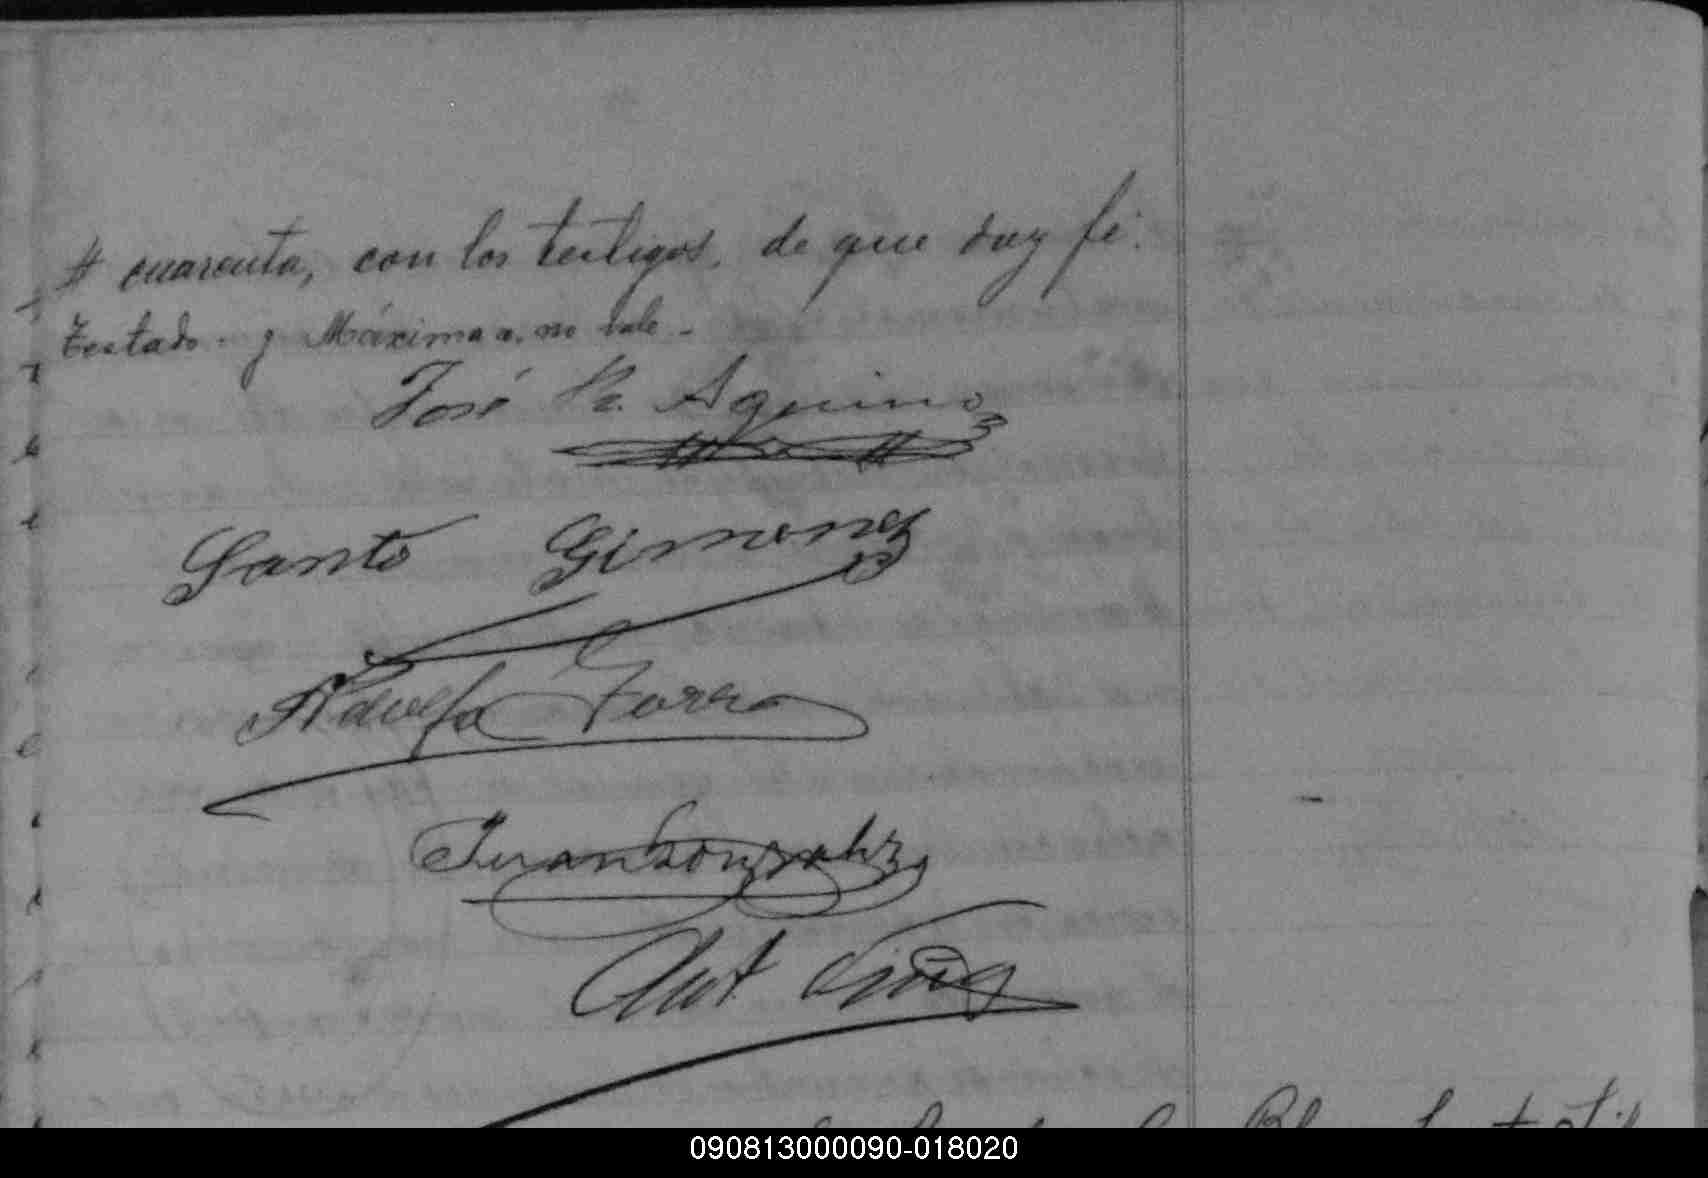 # cuarenta, con los testigos, de que doy fé.
Testado - y Máxima a. no vale -
José R. Aquino
Santo Gimenez
Adolfo Forra
Juan Gonzalez
Ant.
090813000090-018020